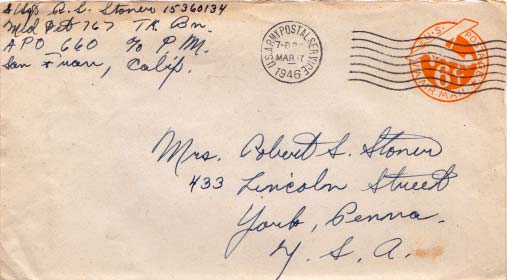 R. C. Stoner 15360134
Med Det 767 TK Bn.
APO 660 c/o P.M.
San Fran, Calif.
U.S. ARMY POSTAL SERVICE
MAR 17
1946
U.S. POSTAGE
6¢
VIA AIR MAIL
Mrs. Robert S. Stoner
433 Lincoln Street
York, Penna.
U. S. A.